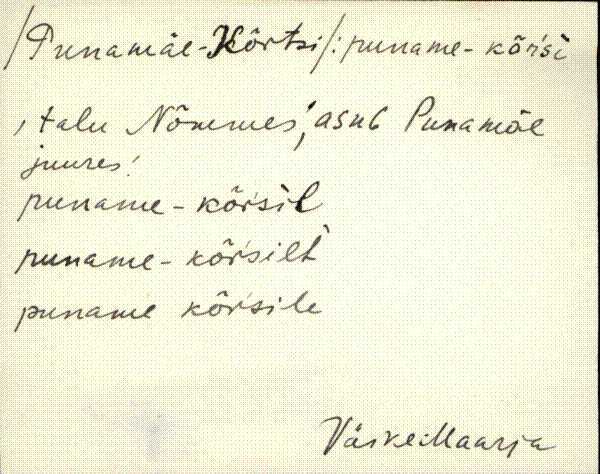 /Punamäe-Kõrtsi/: puname-kõr̕si
, talu Nõmmes', asub Punamäe
juures.'
puname-kõr̕sil
puname-kõr̕silt
puname kõr̕sile
Väike-Maarja